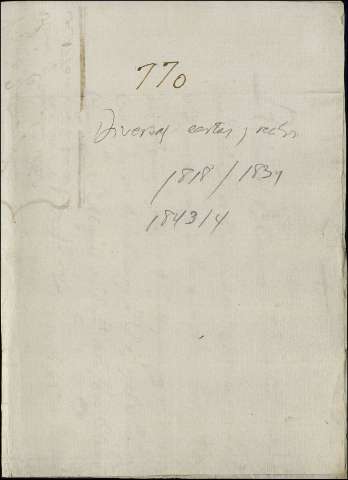 770
Diversas cartas y recibos
1818/1831
1843/4